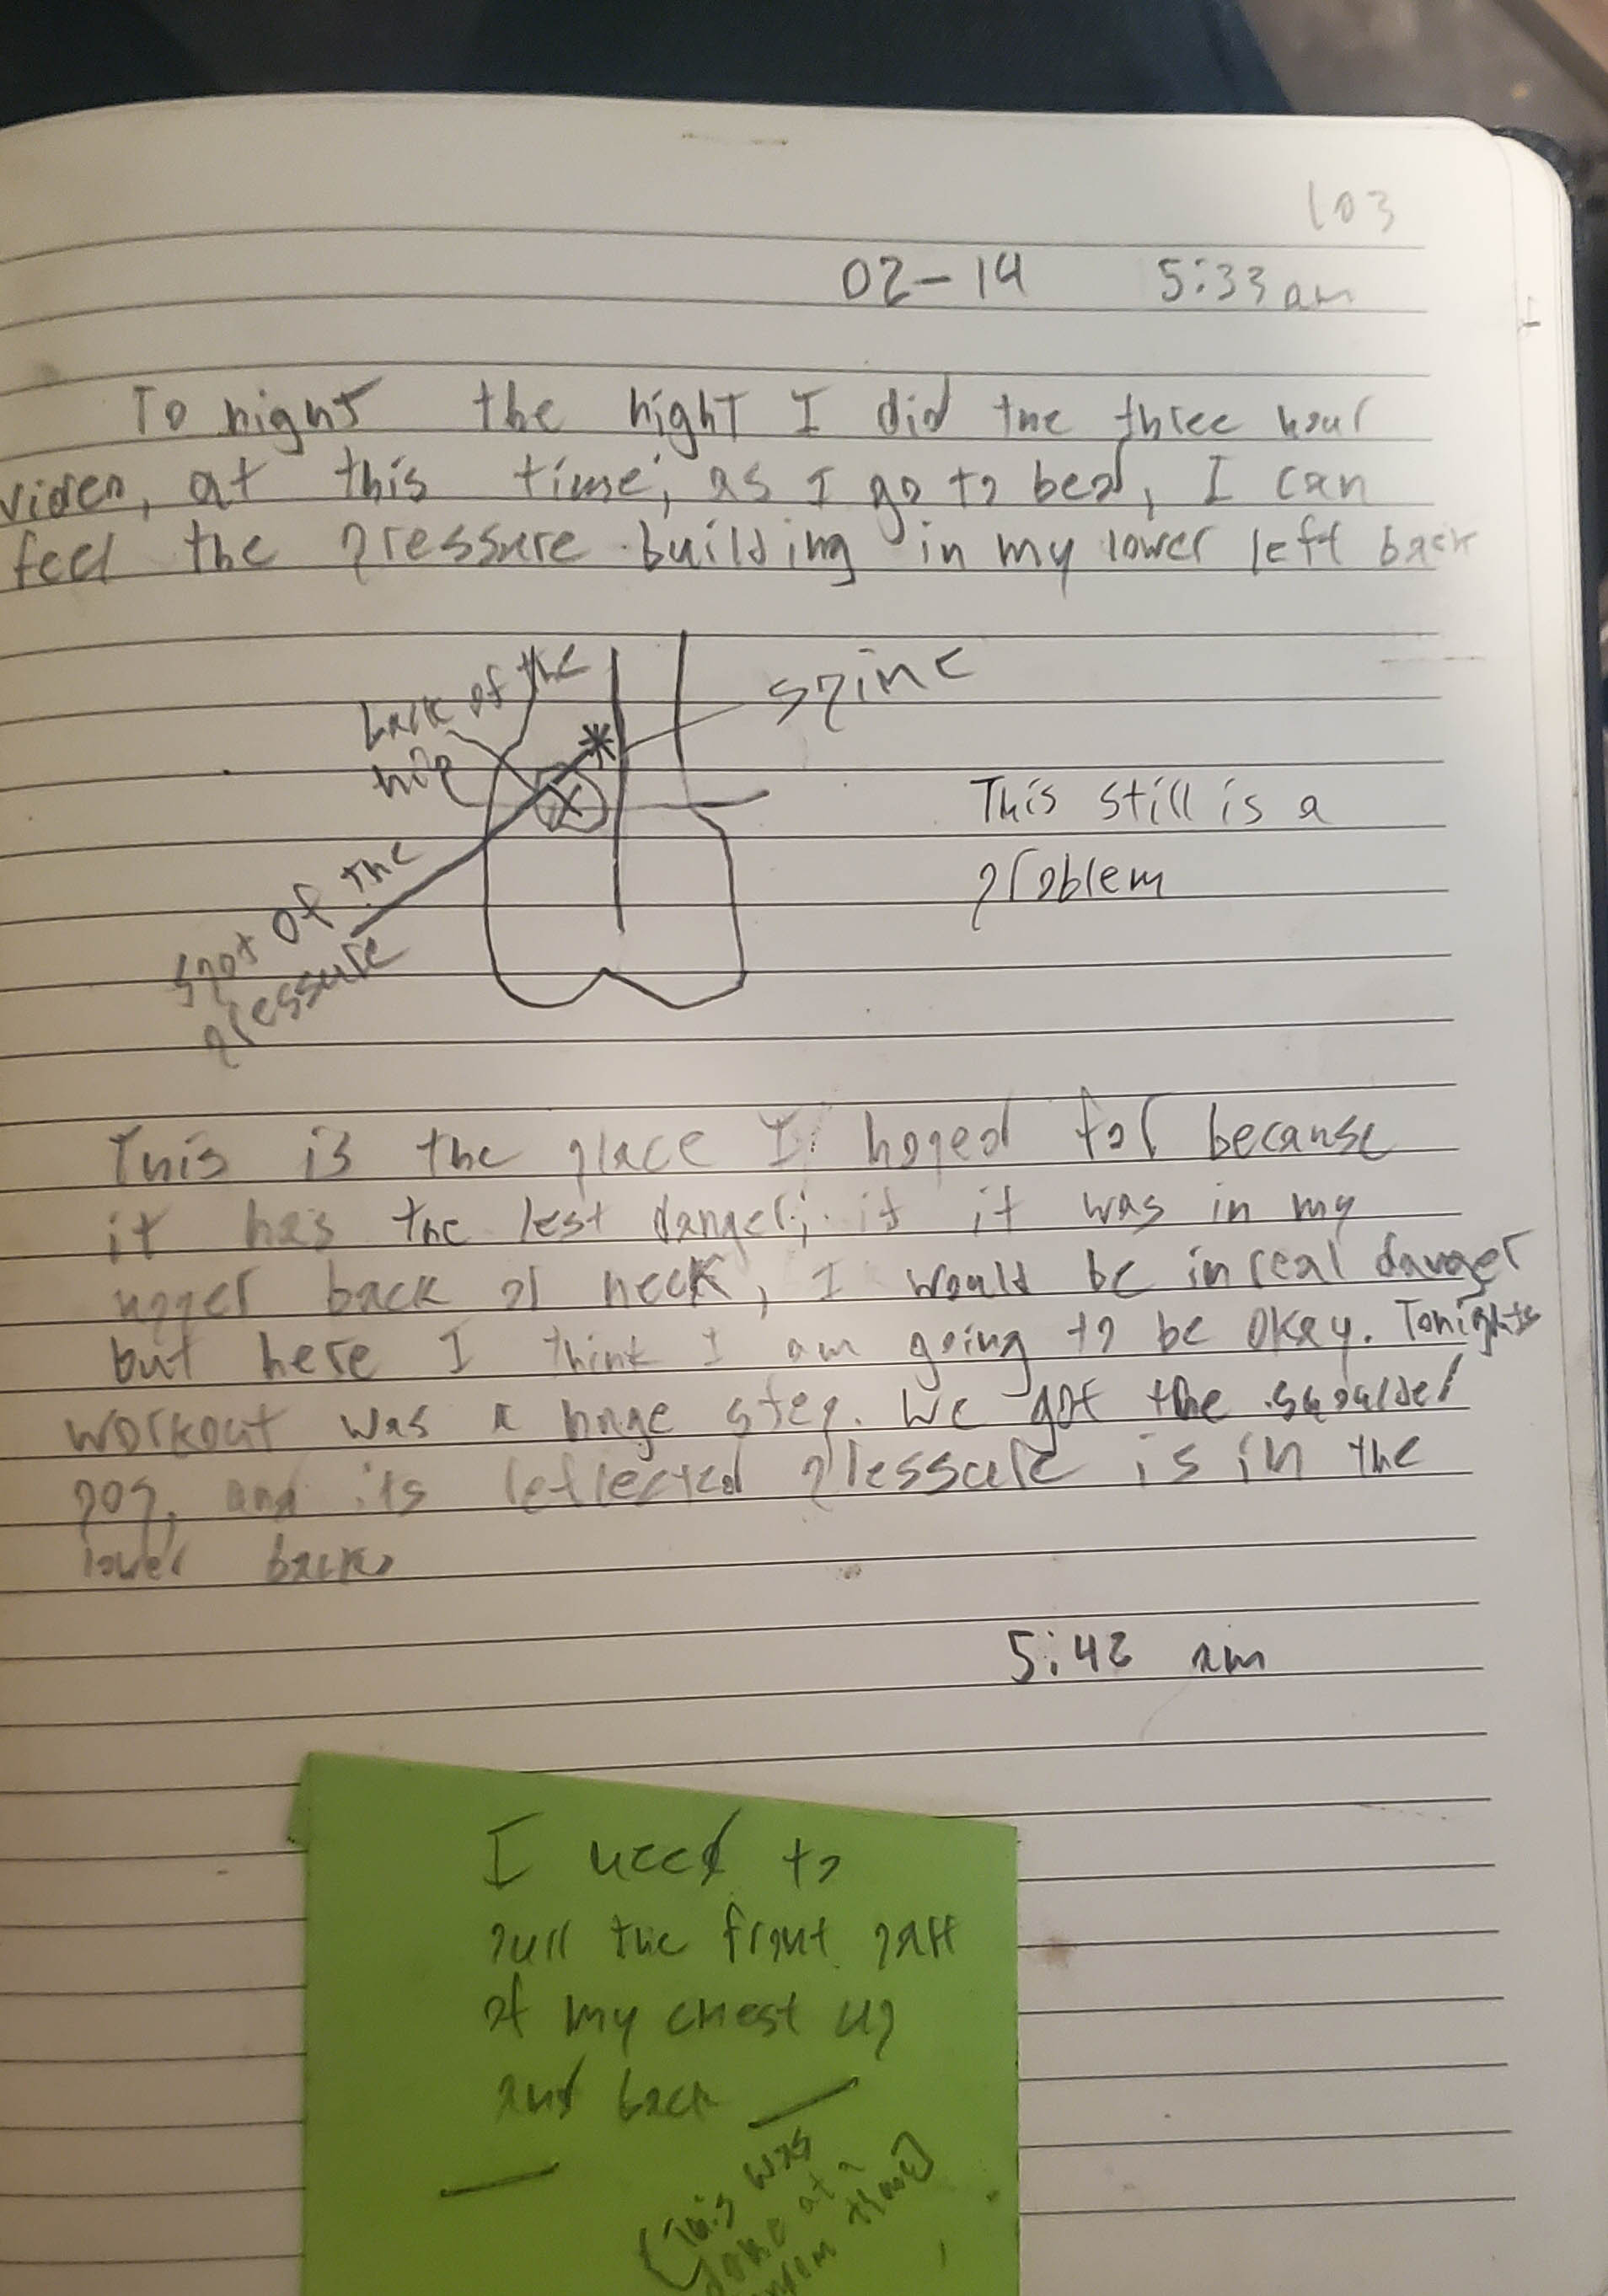 103
02-14 5:33 am
To night the night I did the three hour
video, at this time, as I go to bed, I can
feel the pressure building in my lower left back
back of the
hip
spine
This still is a
problem
spot of the
pressure
This is the place I hoped for because
it has the lest danger; if it was in my
upper back or neck, I would be in real danger
but here I think I am going to be okay. Tonights
workout was a huge step. We got the shoulder
pop, and its reflected pressure is in the
lower back.
5:42 am
I need to
pull the front part
of my chest up
and back
(This was
done at a
random time)